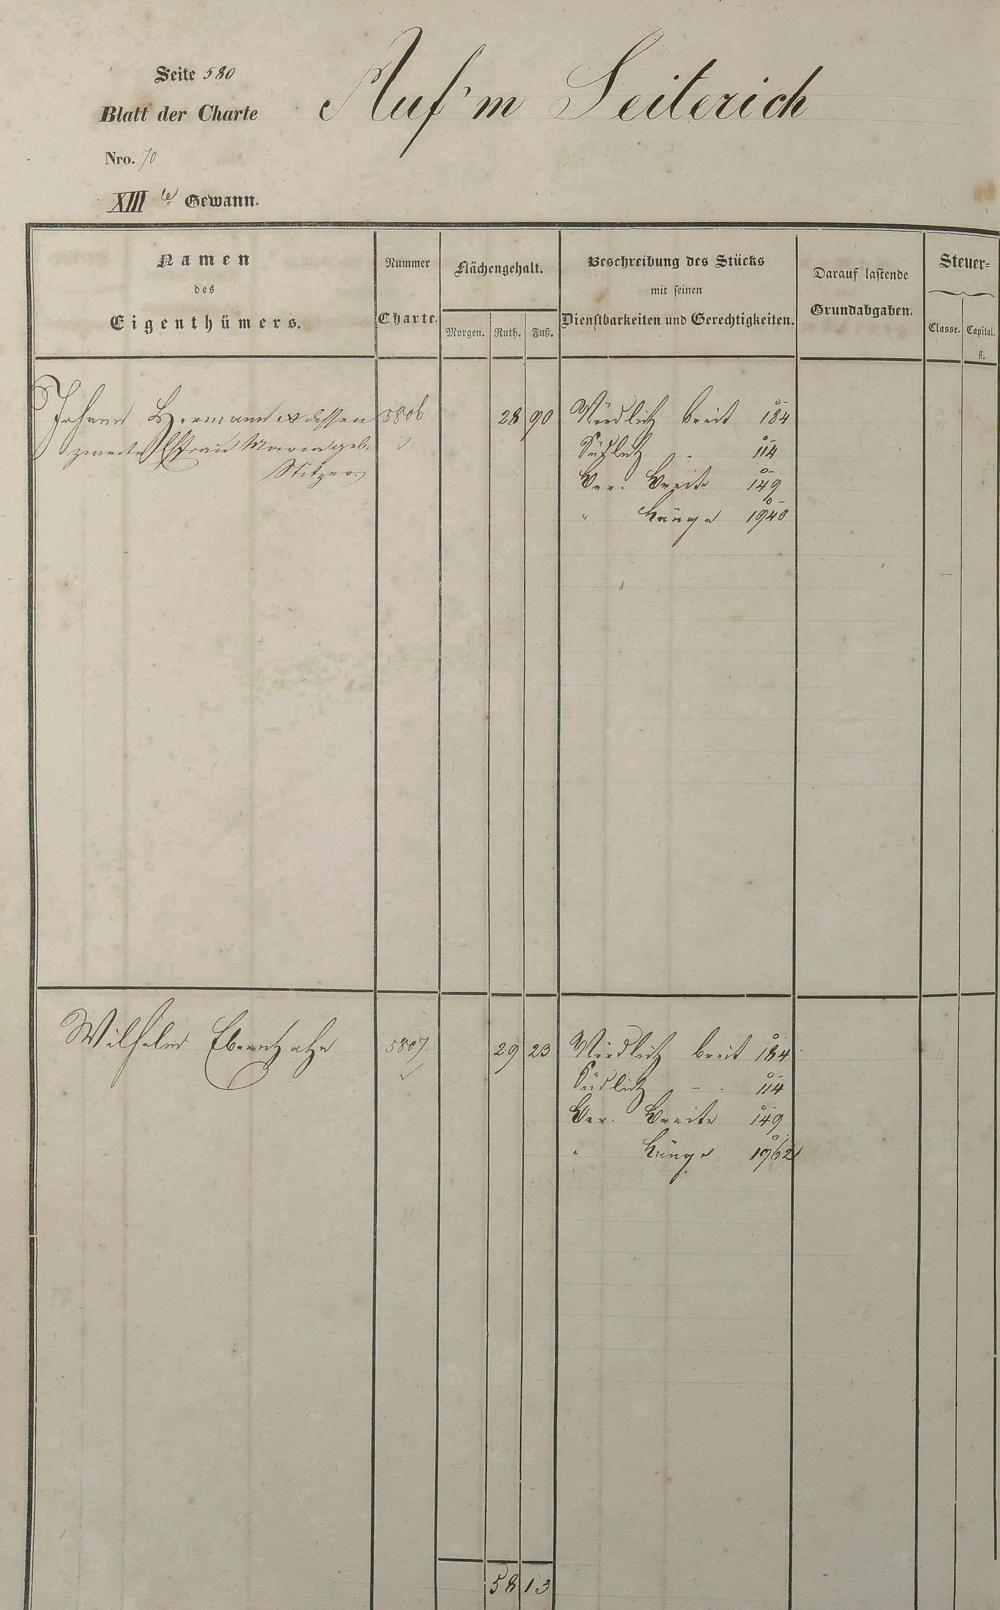 Seite 580
Blatt der Charte
Nro. 70
XIII te Gewann.
Auf'm Seiterich
Namen
des
Eigenthümers.
Nummer
Charte.
Flächengehalt.
Morgen. Ruth. Fuß.
Beschreibung des Stücks
mit seinen
Dienstbarkeiten und Gerechtigkeiten.
Darauf lastende
Grundabgaben.
Steuer=
Classe. Capital.
fl.
Johann Hermann & dessen 5806 28 90 Nördlich breit 184
zweite Efrau Maria geb. Südlich " 114
Stitzer Ver. Breite 149
" Länge 1940
Wilhelm 5807. 29 23 Nördlich breit 184
Südlich " 114
Ver. Breite 149
" Länge 1962
58 13